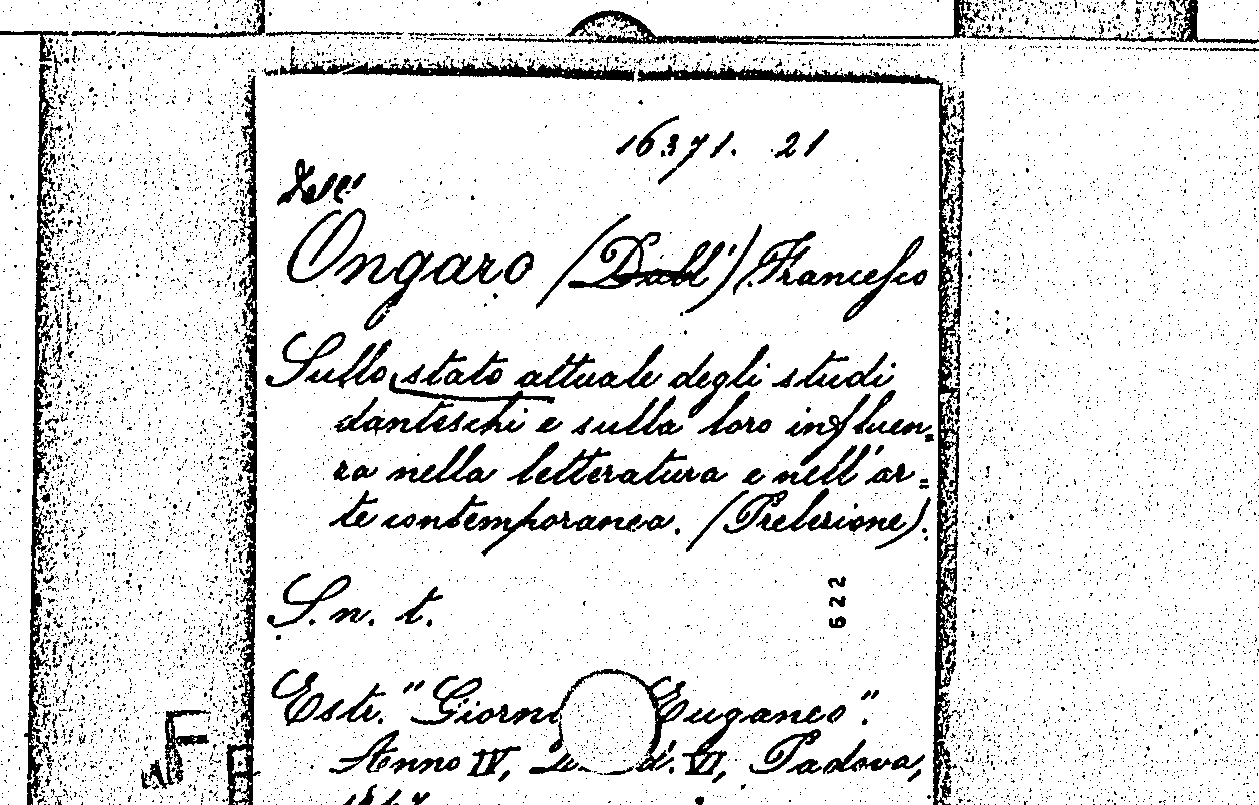 16371. 21
Dall'
Ongaro (Dall') Francesco
Sullo stato attuale degli studi
danteschi e sulla loro influen=
za nella letteratura e nell'ar=
te contemporanea. (Prelezione).
S. n. t.
622
Estr. "Giorn Euganeo".
Anno IV, d. VI, Padova,